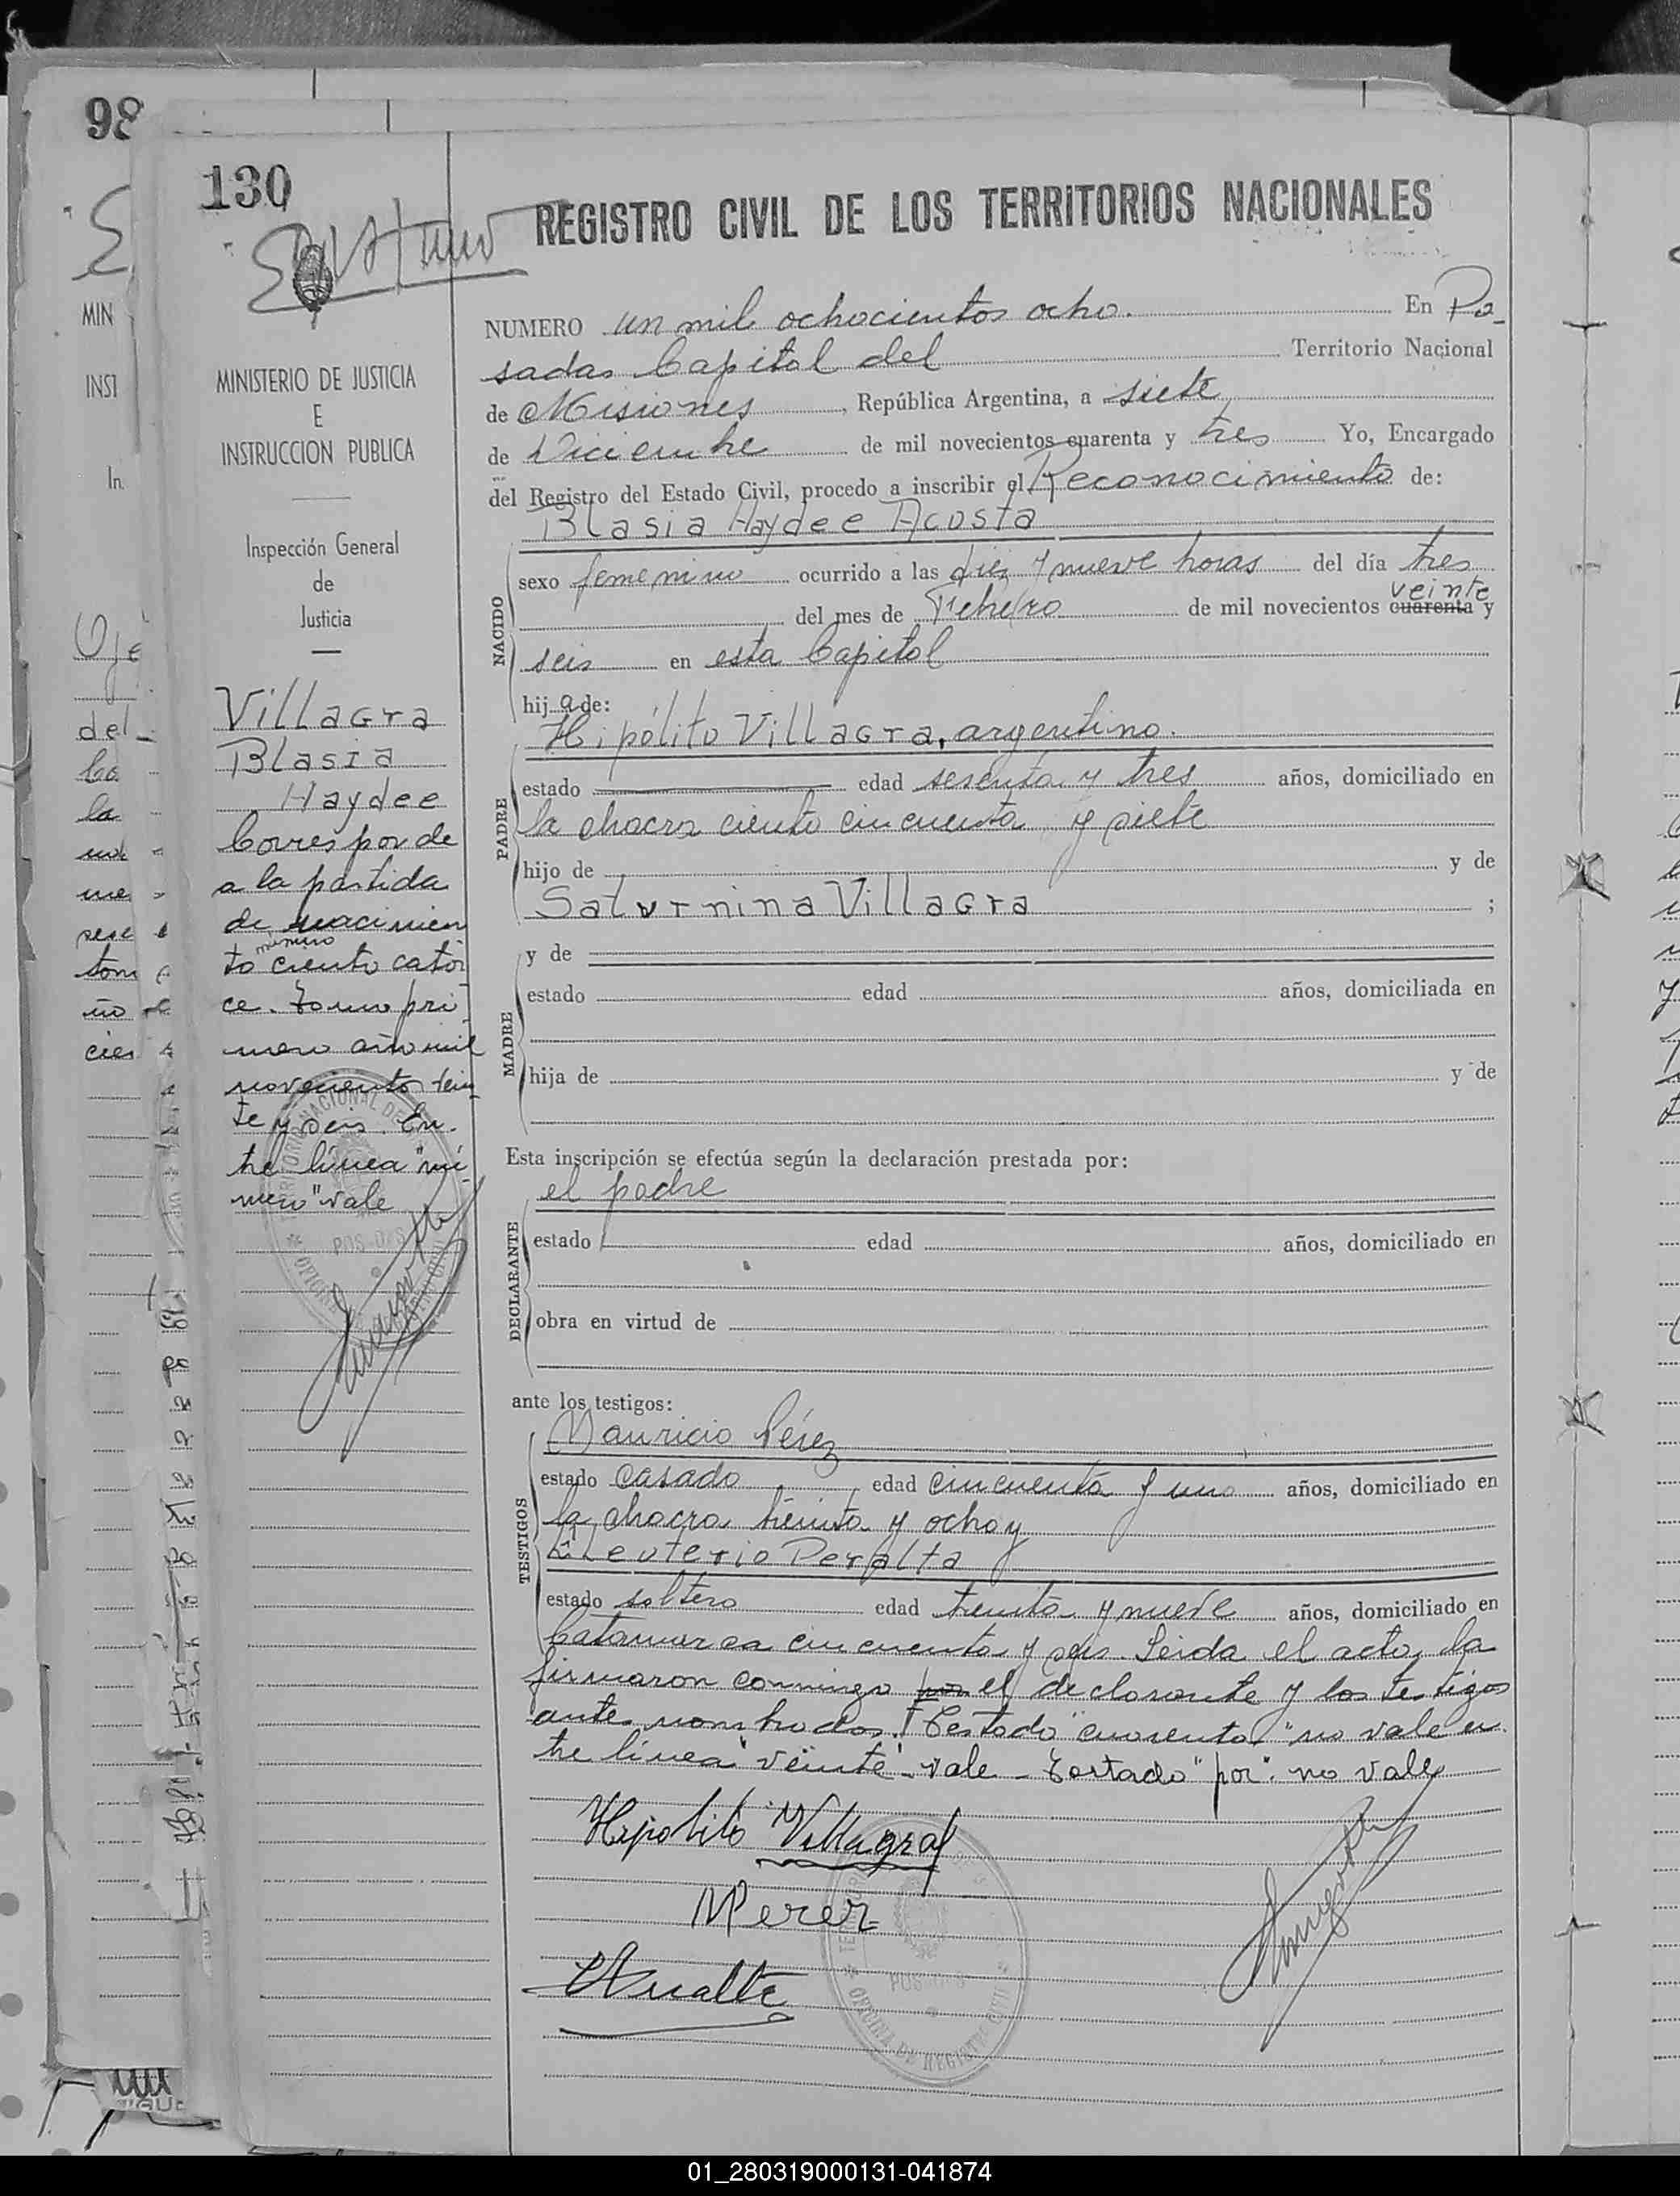 98
130
REGISTRO CIVIL DE LOS TERRITORIOS NACIONALES
NUMERO un mil ochocientos ocho. En Po-
sadas Capital del Territorio Nacional
de Misiones, República Argentina, a siete
de Diciembre de mil novecientos cuarenta y tres Yo, Encargado
del Registro del Estado Civil, procedo a inscribir el Reconocimiento de:
Blasia Haydee Acosta
NACIDO
sexo femenino ocurrido a las diez y nueve horas del día tres
veinte
del mes de Febrero de mil novecientos cuarenta y
seis en esta Capital
hija de:
PADRE
Hipólito Villagra, argentino.
estado edad sesenta y tres años, domiciliado en
la chacra ciento cincuenta y siete
hijo de y de
Saturnina Villagra ;
MADRE
y de
estado edad años, domiciliada en
hija de y de
Esta inscripción se efectúa según la declaración prestada por:
DECLARANTE
el padre
estado edad años, domiciliado en
obra en virtud de
ante los testigos:
TESTIGOS
Mauricio Pérez
estado casado edad cincuenta y uno años, domiciliado en
la chacra treinta y ocho y
Eleuterio Peralta
estado soltero edad treinta y nueve años, domiciliado en
Catamarca cincuenta y seis. Leida el acta, la
firmaron conmigo por el declarante y los testigos
antes nombrados. Testado "cuarenta" no vale en
tre línea "veinte" vale - Testado "por" no vale
Hipolito Villagra
MPerez
MINISTERIO DE JUSTICIA
E
INSTRUCCION PUBLICA
Inspección General
de
Justicia
Villagra
Blasia
Haydee
Corresponde
a la partida
de nacimien
número
to ciento cator
ce. tomo pri
mero año mil
novecientos vein
te y seis. En-
tre línea "nú
mero" vale
MIN
INST
In.
del
la
01_280319000131-041874